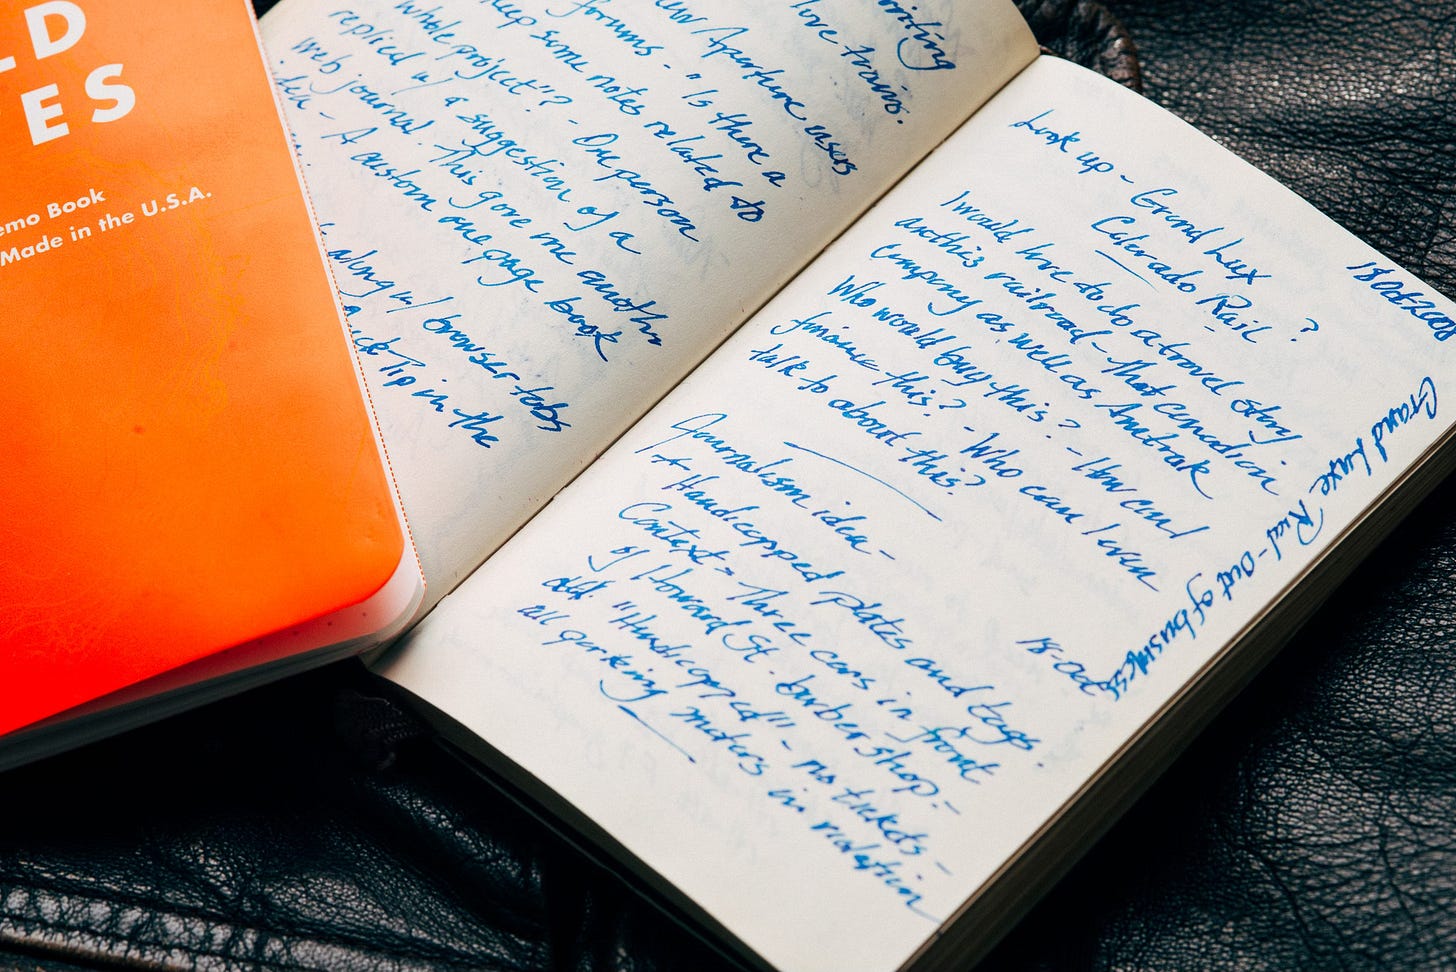 LD
ES
emo Book
Made in the U.S.A.
writing
love trains.
Aperture users
forums - "Is there a
keep some notes related to
whole project"? - One person
replied w/ a suggestion of a
web journal. This gave me another
idea - A custom one page book
along w/ browser tabs
Tip in the
18 Oct 2008
Look up - Grand Lux
Colorado Rail ?
I would love to do a travel story
on this railroad - that Canadian
Company as well as Amtrak
Who would buy this? - How can I
finance this? - Who can I even
talk to about this?
Grand Luxe Rail - Out of business
18 Oct
Journalism idea -
Handicapped plates and tags.
Context = Three cars in front
of Howard St. barber shop -
all "Handicapped" - no tickets -
all parking meters in violation